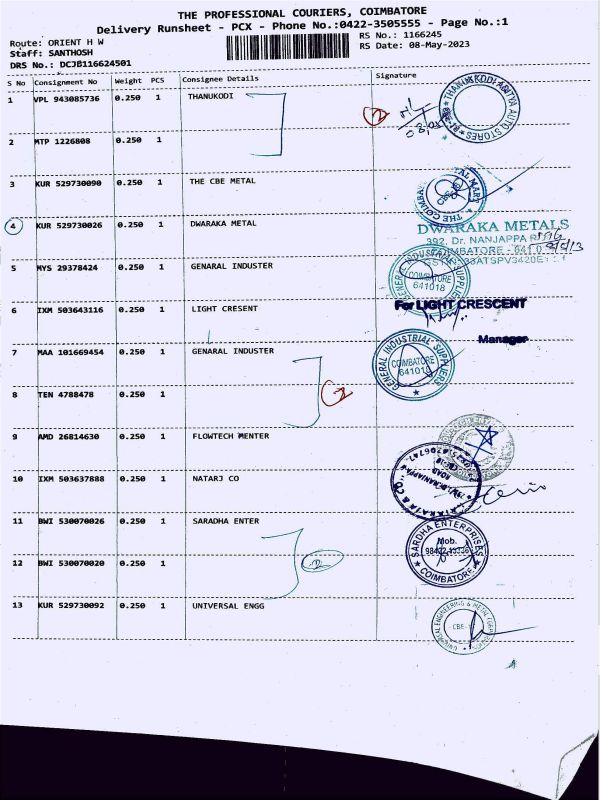 THE PROFESSIONAL COURIERS, COIMBATORE
Delivery Runsheet - PCX - Phone No.:0422-3505555 - Page No.:1
Route: ORIENT H W
RS No.: 1166245
Staff: SANTHOSH
RS Date: 08-May-2023
DRS No.: DCJB116624501
S No Consignment No Weight PCS Consignee Details Signature
1 VPL 943085736 0.250 1 THANUKODI
2
THANUKODI ADITYA AUTO STORES
2 MTP 1226808 0.250 1
3 KUR 529730090 0.250 1 THE CBE METAL
THE COIMBA
4 KUR 529730026 0.250 1 DWARAKA METAL
DWARAKA METALS
392, Dr. NANJAPPA
COIMBATORE - 641 0
5 MYS 29378424 0.250 1 GENARAL INDUSTER
GENERAL INDUSTRIAL SUPPLIERS
COIMBATORE
641018
6 IXM 503643116 0.250 1 LIGHT CRESENT
For LIGHT CRESCENT
Manager
7 MAA 101669454 0.250 1 GENARAL INDUSTER
GENERAL INDUSTRIAL SUPPLIERS
COIMBATORE
641018
8 TEN 4788478 0.250 1
2
9 AMD 26814630 0.250 1 FLOWTECH MENTER
10 IXM 503637888 0.250 1 NATARJ CO
ROAD
11 BWI 530070026 0.250 1 SARADHA ENTER
SARDHA ENTERPRISES
Mob.
COIMBATORE
12 BWI 530070020 0.250 1
2
13 KUR 529730092 0.250 1 UNIVERSAL ENGG
UNIVERSAL ENGINEERING & METAL
CBE-